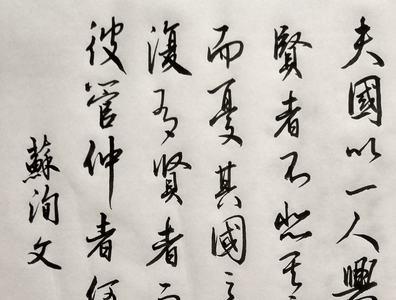 夫國以一人興
賢者不悲其
而憂其國之
復有賢者而
彼管仲者何
蘇洵文